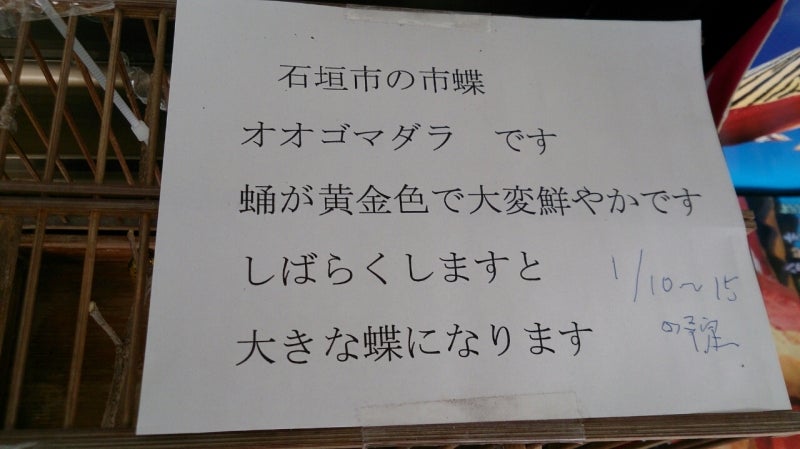 石垣市の市蝶
オオゴマダラ　です
蛹が黄金色で大変鮮やかです
しばらくしますと
大きな蝶になります
1/10～15
の予定